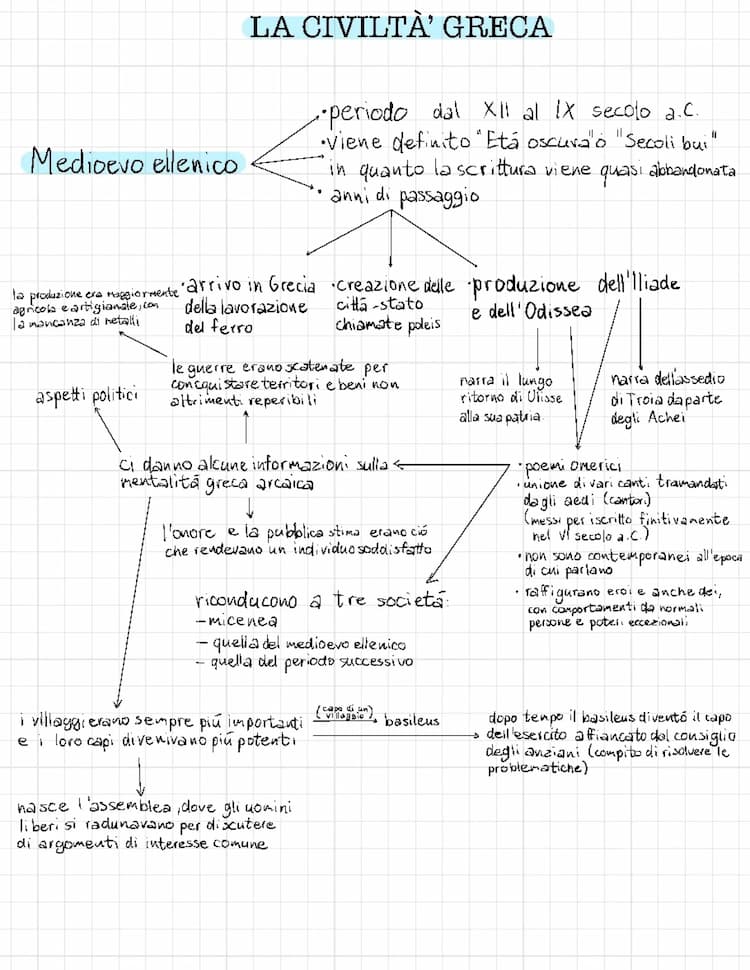 LA CIVILTÀ' GRECA
Medioevo ellenico
•periodo dal XII al IX secolo a.C.
•viene definito "Etá oscura" o "Secoli bui"
in quanto la scrittura viene quasi abbandonata
• anni di passaggio
la produzione era maggiormente
agricola e artigianale, con
la mancanza di metalli
•arrivo in Grecia
della lavorazione
del ferro
•creazione delle
cittá-stato
chiamate poleis
•produzione dell'Iliade
e dell'Odissea
le guerre erano scatenate per
concquistare territori e beni non
altrimenti reperibili
aspetti politici
narra il lungo
ritorno di Ulisse
alla sua patria.
narra dell'assedio
di Troia da parte
degli Achei
ci danno alcune informazioni sulla
mentalitá greca arcaica
• poemi omerici
• unione di vari canti tramandati
dagli aedi (cantori)
(messi per iscritto finitivamente
nel VI secolo a.C.)
• non sono contemporanei all'epoca
di cui parlano
• raffigurano eroi e anche dei,
con comportamenti da normali
persone e poteri eccezionali
l'onore e la pubblica stima erano ció
che rendevano un individuo soddisfatto
riconducono a tre societá:
-micenea
- quella del medioevo ellenico
- quella del periodo successivo
i villaggi erano sempre piú importanti
e i loro capi divenivano piú potenti
(capo di un
villaggio)
basileus
dopo tempo il basileus diventó il capo
dell'esercito affiancato dal consiglio
degli anziani (compito di risolvere le
problematiche)
nasce l'assemblea, dove gli uomini
liberi si radunavano per discutere
di argomenti di interesse comune